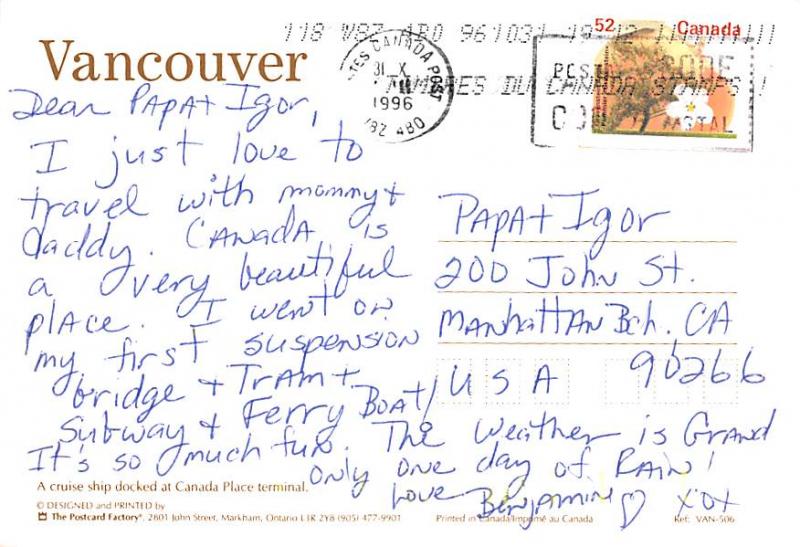 118 V8Z 4B0 961031 19:12
52 Canada
Vancouver
CANADA POST
31 X
1996
V8Z 4B0
POSTAL CODE
CODE POSTAL
TIMBRES DU CANADA STAMPS!
Dear PAPA + Igor,
I just love to
travel with mommy +
daddy. CANADA is
a very beautiful
place. I went on
my first suspension
bridge + TRAM +
Subway + Ferry BOAT/
It's so much fun. The Weather is GRAND
only one day of RAIN!
Love Benjamin ♡ xox
PAPA + Igor
200 John St.
MANhattan Bch. CA
90266
USA
A cruise ship docked at Canada Place terminal.
© DESIGNED and PRINTED by
The Postcard Factory® 2801 John Street, Markham, Ontario L3R 2Y8 (905) 477-9901
Printed in Canada/Imprimé au Canada
Ref: VAN-506